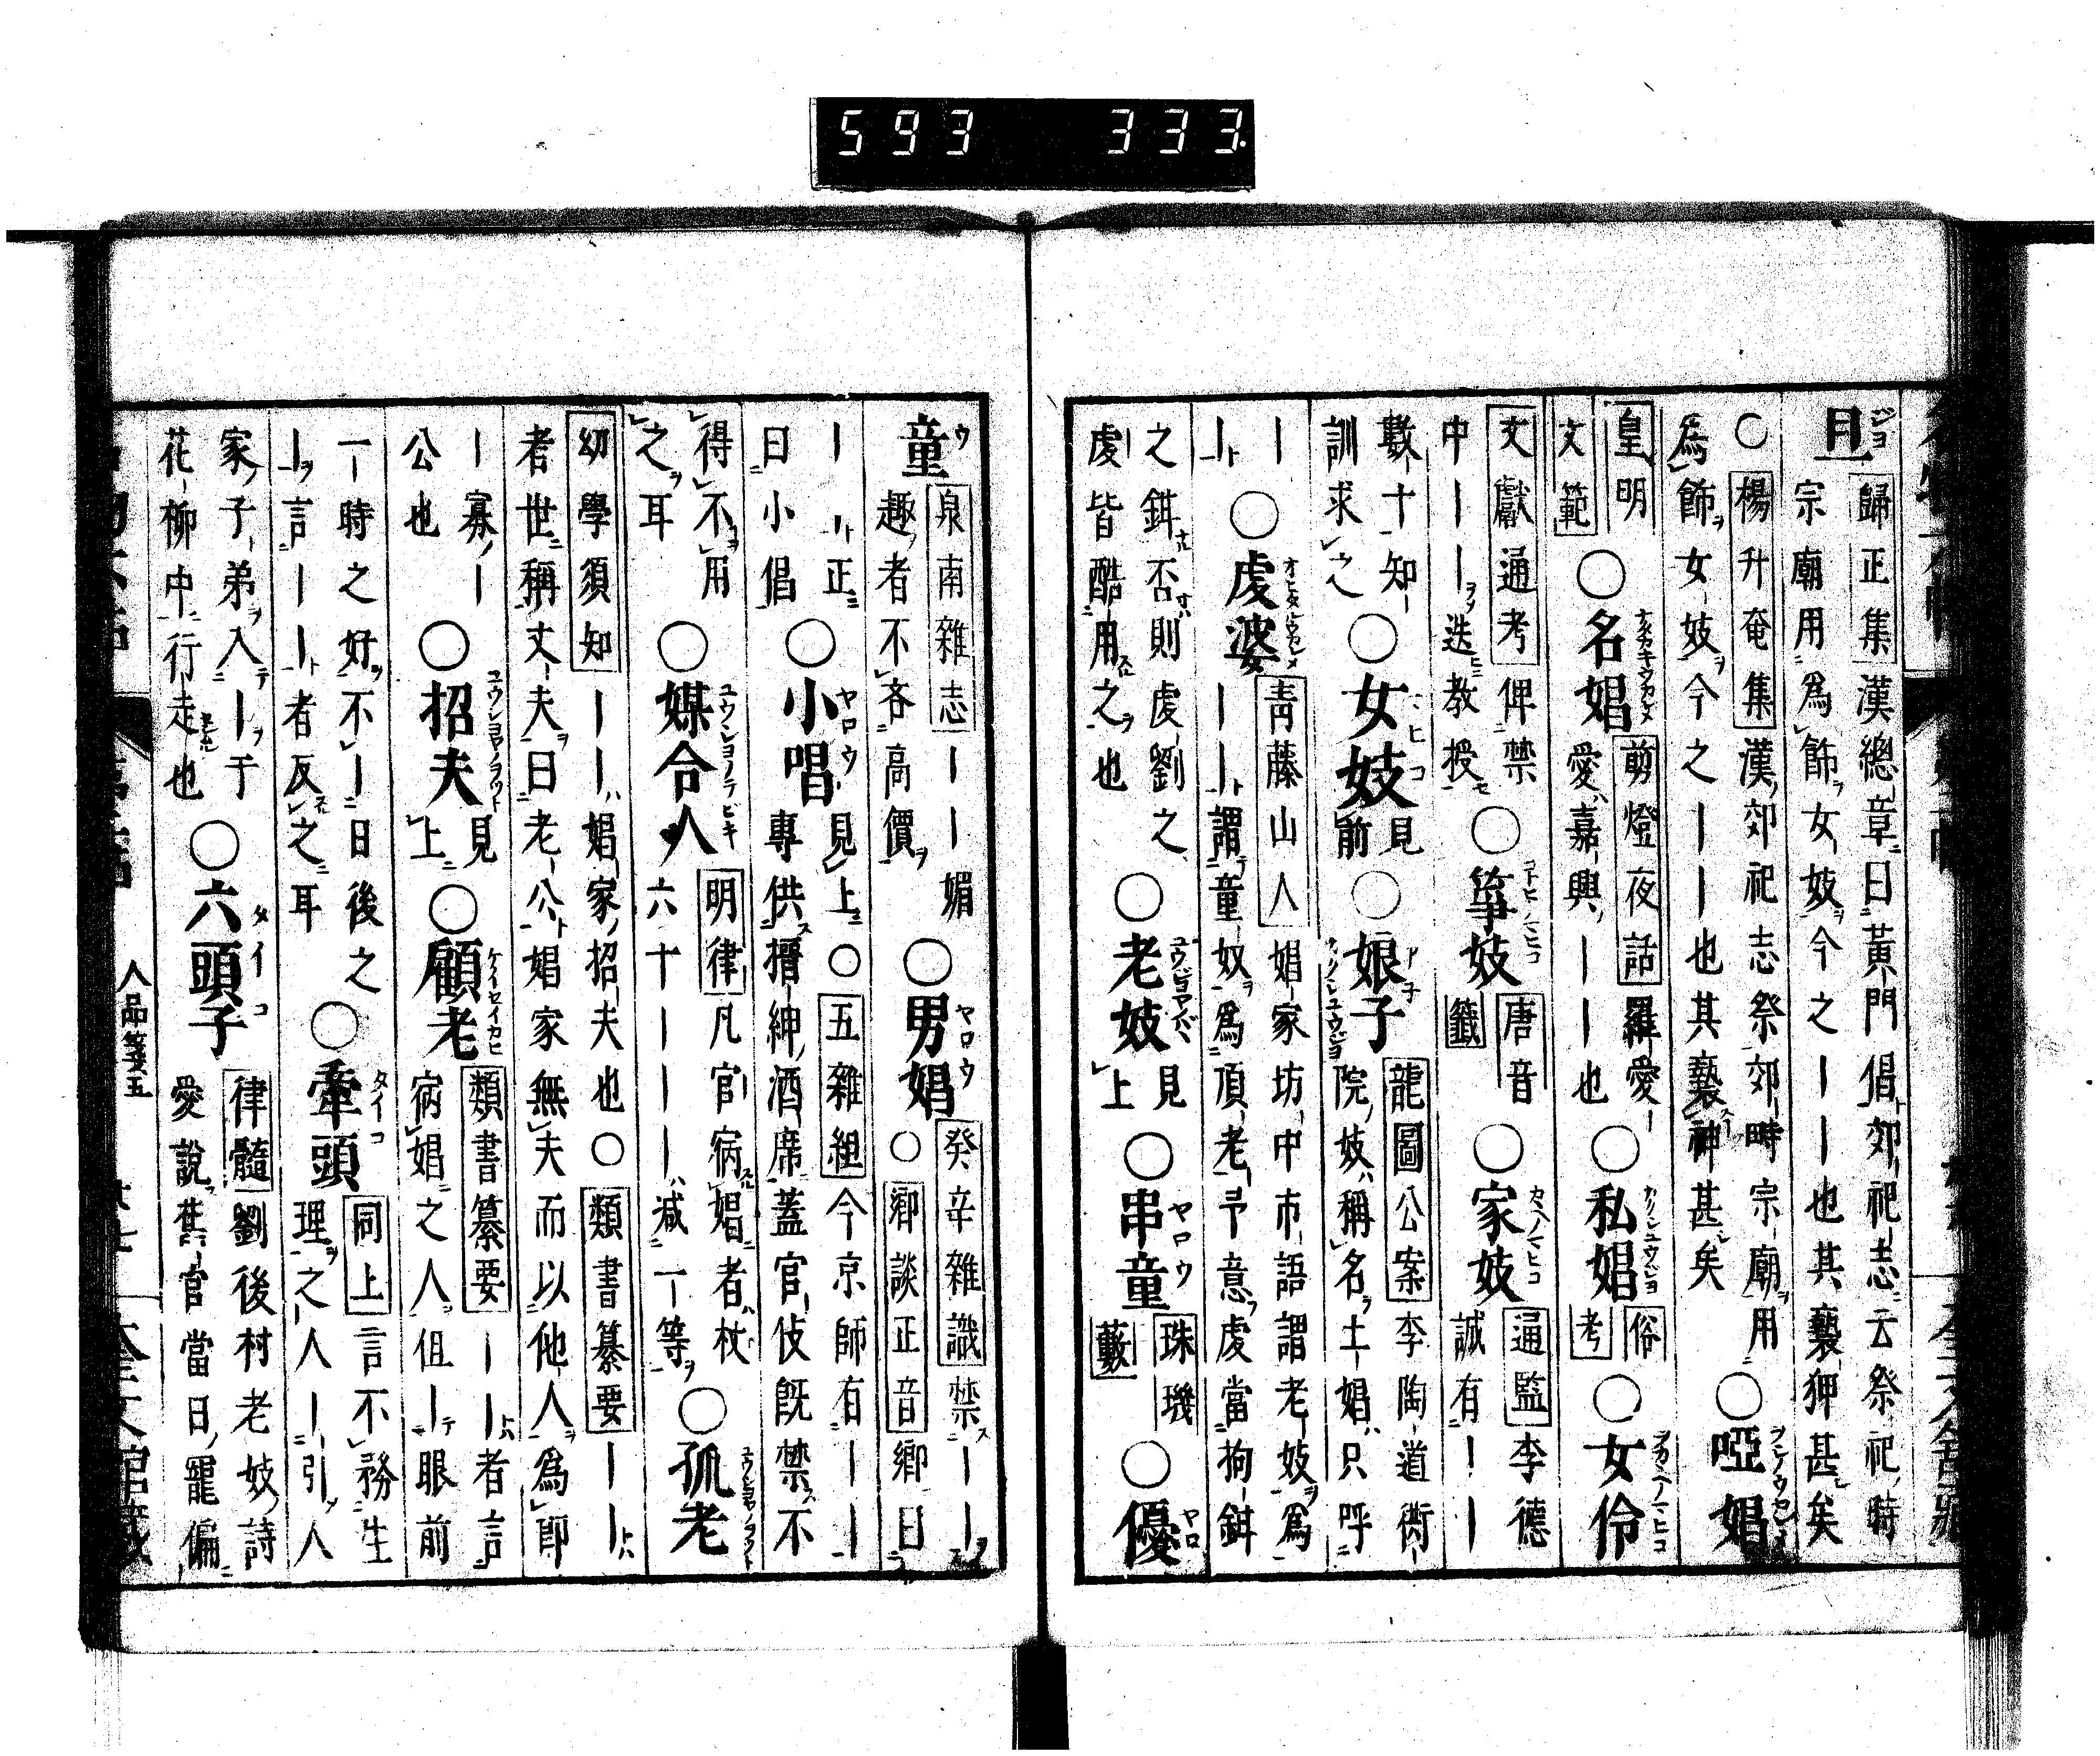 旦 歸正集 漢總章曰黃門倡郊祀志云祭祀時
宗廟用爲飾女妓今之――也其褻狎甚矣
○楊升奄集 漢郊祀志祭郊時宗廟用
爲飾女妓今之―――也其褻神甚矣
○啞娼
皇明
文範
○名娼 剪燈夜話 羅愛―
愛嘉興――也
○私娼 俗
考
○女伶
文獻通考 俾禁
中――迭教授
○箏妓 唐音
籤
○家妓 通監 李德
誠有――
數十知
訓求之
○女妓 見
前
○娘子 龍圖公案 李陶道衒
院妓稱名土娼只呼
―
――
○虔婆 青藤山人 娼家坊中市語謂老妓爲
――謂童奴爲頂老予意虔當拘鉗
之鉗否則虔劉之
虔皆酷用之也
○老妓 見
上
○串童 珠璣
藪
○優
童 泉南雜志 ―――媚
趣者不吝高價
○男娼 癸辛雜識 禁――
○鄉談正音 鄉曰
――正
曰小倡
○小唱 見上○五雜組 今京師有――
專供搢紳酒席蓋官伎既禁不
得不用
之耳
○媒合人 明律 凡官宿娼者杖
六十―――減一等
○孤老
幼學須知 ――娼家招夫也○類書纂要 ――
者世稱丈夫曰老公娼家無夫而以他人爲即
―寡―
公也
○招夫 見
上
○顧老 類書纂要 ――者言
宿娼之人但―眼前
一時之好不―日後之
―言――者反之耳
○牽頭 同上 言不務生
理之人―引人
家子弟入―于
花柳中行走也
○六頭子 律髓 劉後村老妓詩
愛說舊官當日寵偏
人品箋五
593 333